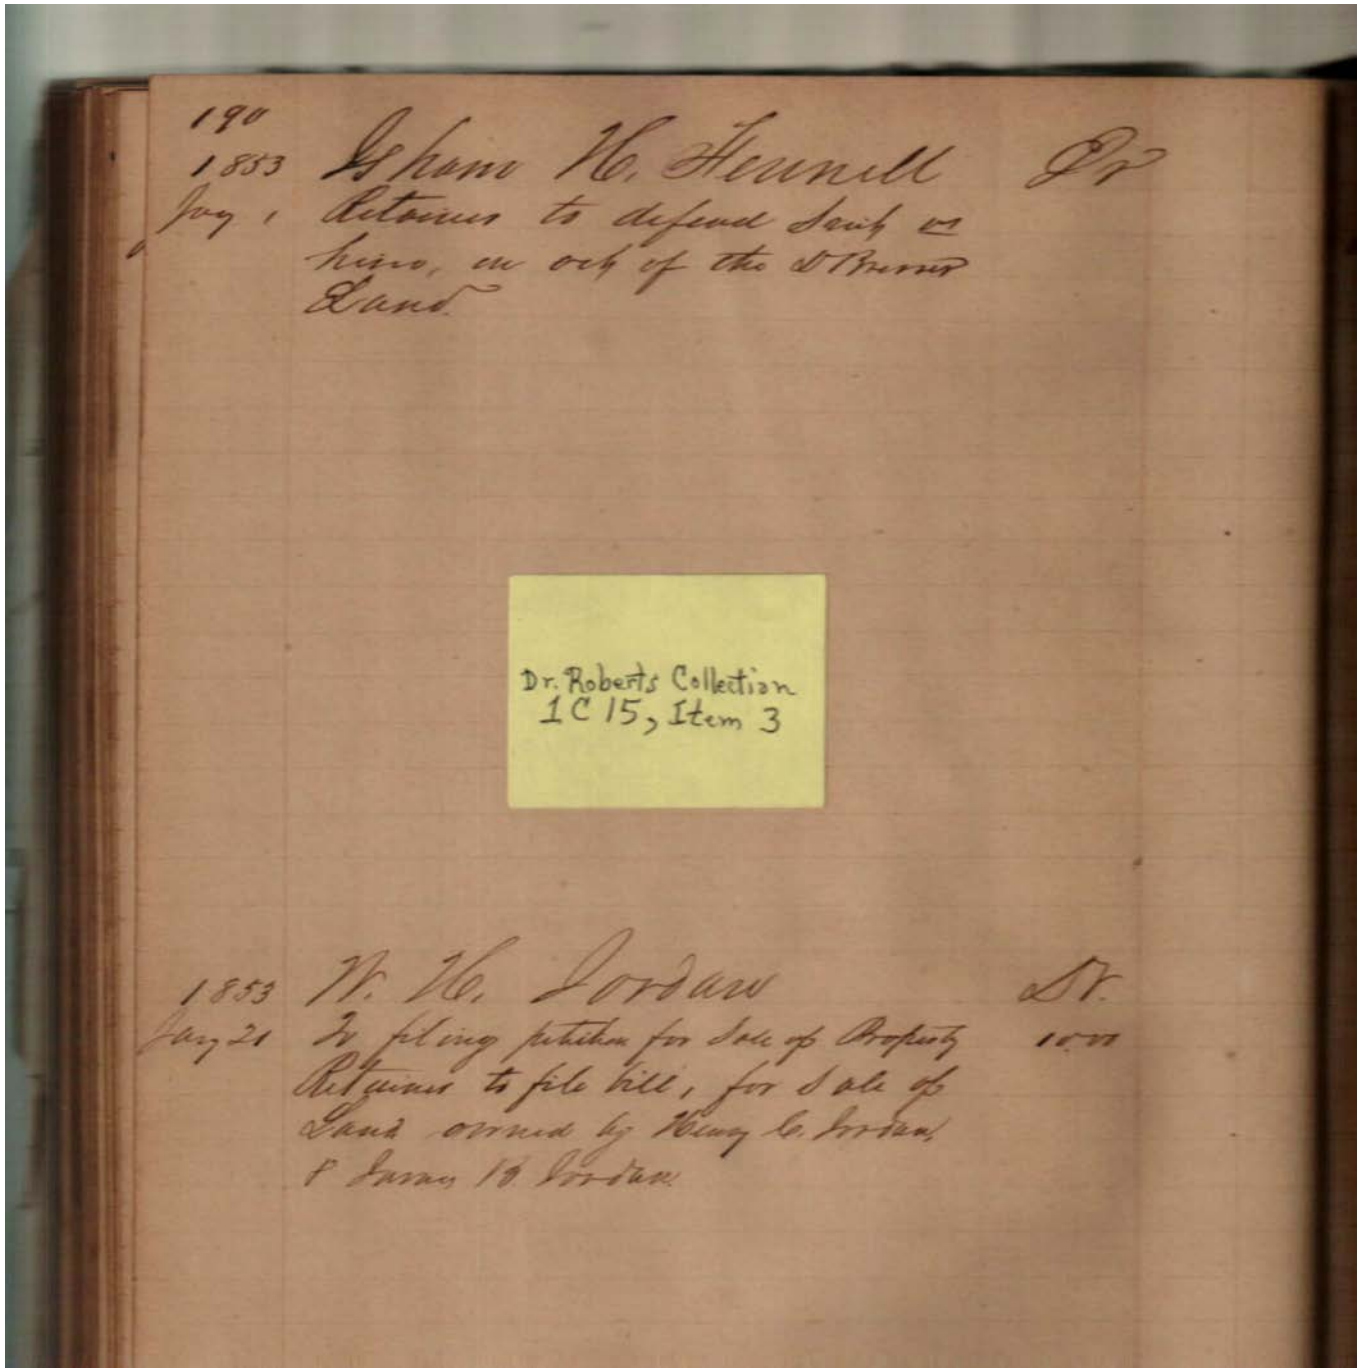 190
1853 Isham H. Fennell Dr
Jay 1 Retainer to defend Suit vs
him, on act of the
Land.
Dr. Roberts Collection
1C15, Item 3
1853 W. H. Jordan Dr.
Jany 21 To filing petition for Sale of Property 10.00
Retainer to file bill, for Sale of
Land owned by Henry C. Jordan,
& James B. Jordan.